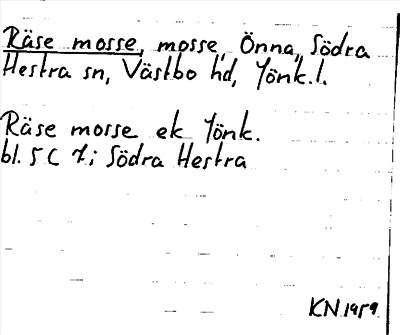 Räse mosse, mosse, Önna, Södra
Hestra sn, Västbo hd, Jönk.l.
Räse mosse ek Jönk.
bl. 5 C 7i Södra Hestra
KN 1959